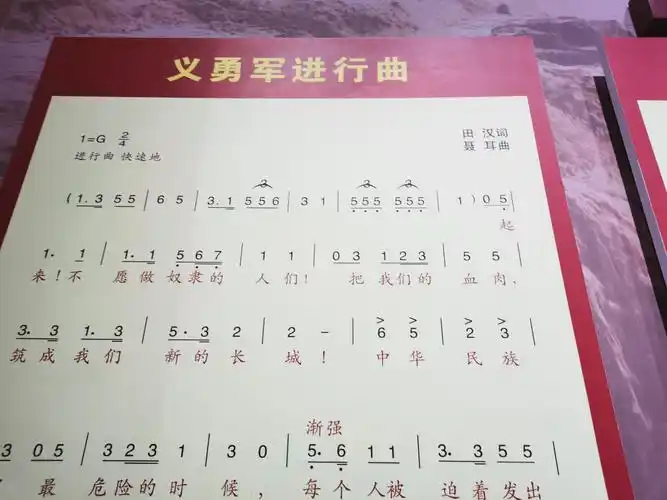 义勇军进行曲
1=G 2/4
田 汉词
进行曲 快速地
聂 耳曲
( 1. 3 5 5 | 6 5 | 3. 1 5 5 6 | 3 1 | 5 5 5 5 5 5 | 1 ) 0 5
起
1. 1 | 1. 1 5 6 7 | 1 1 | 0 3 1 2 3 | 5 5 |
来！不 愿做 奴隶的 人们！ 把 我们的 血肉，
3. 3 1. 3 | 5. 3 2 | 2 - | 6 5 | 2 3 |
筑成 我们 新的长 城！ 中华 民族
渐强
3 0 5 | 3 2 3 1 | 3 0 | 5. 6 1 1 | 3. 3 5 5 |
最 危险的时 候， 每个人被 迫着发出